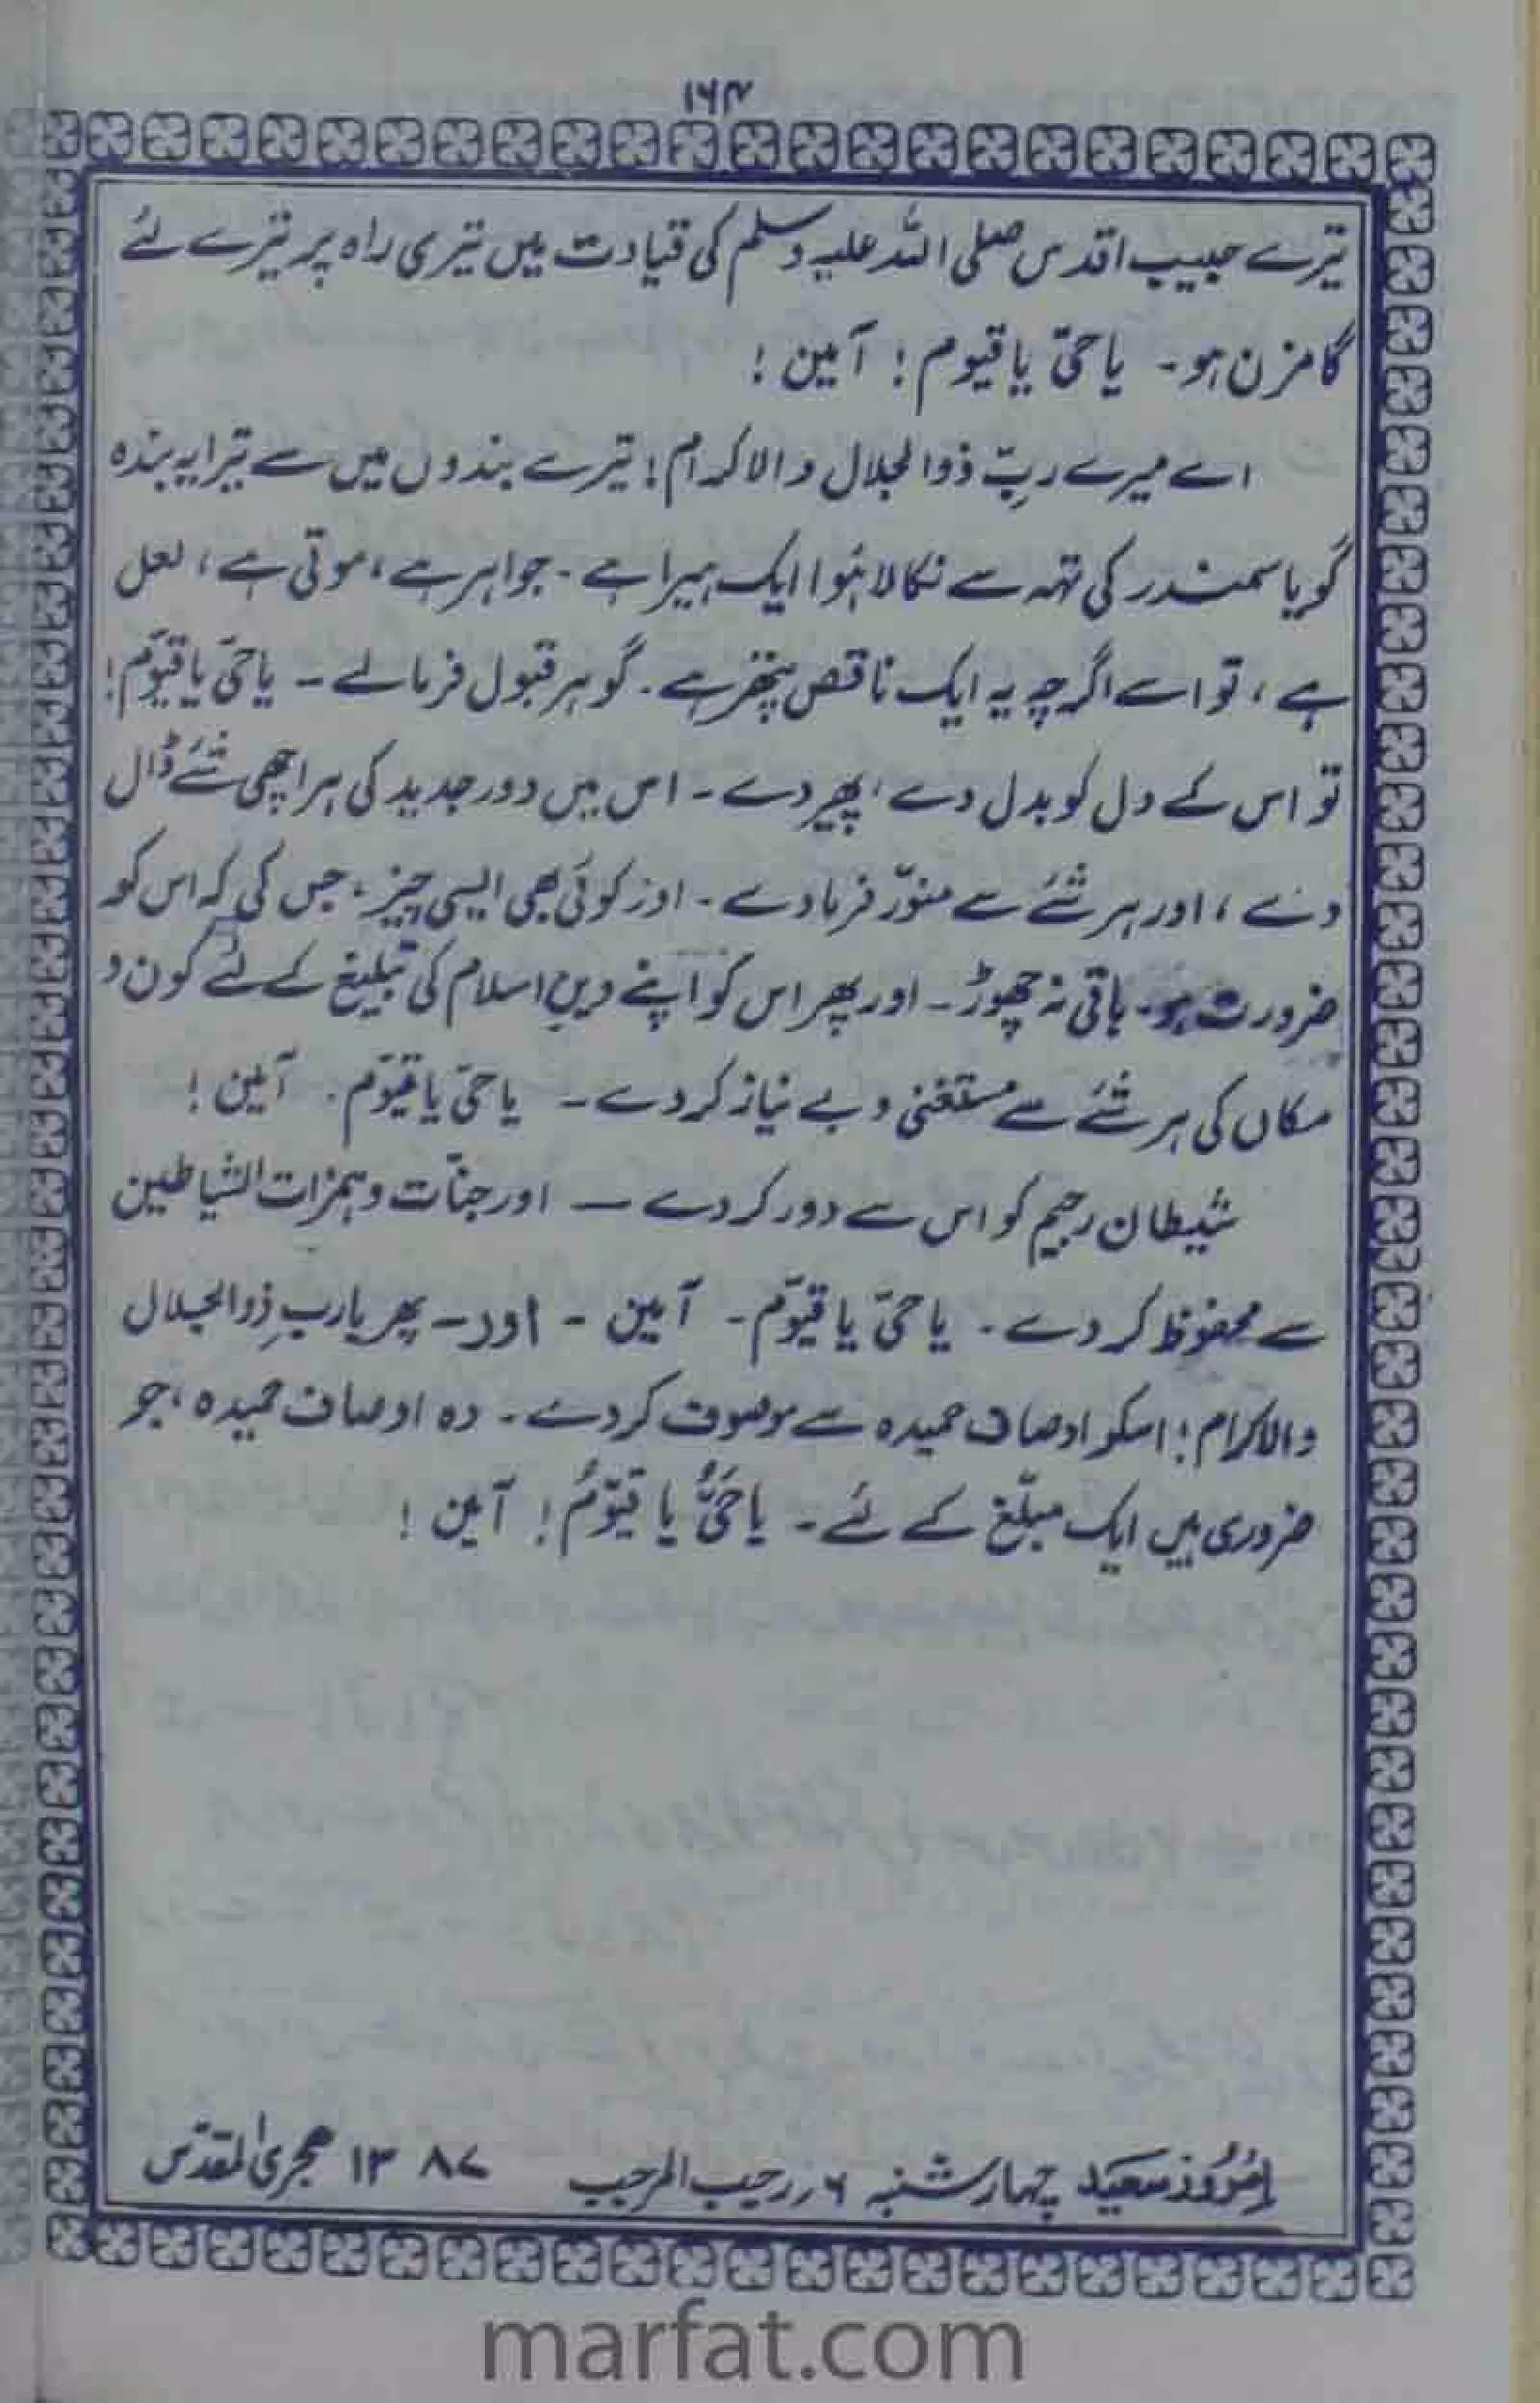 ۱۶۴
تیرے حبیب اقدس صلی اللہ علیہ وسلم کی قیادت میں تیری راہ پر تیرے لئے
گامزن ہو۔ یا حیّ یا قیوم! آمین!
اے میرے ربّ ذوالجلال والاکرام! تیرے بندوں میں سے تیرا یہ بندہ
گویا سمندر کی تہہ سے نکالا ہُوا ایک ہیرا ہے۔ جواہر ہے، موتی ہے، لعل
ہے، تو اسے اگرچہ یہ ایک ناقص پتھر ہے۔ گوہر قبول فرمالے۔ یا حیّ یا قیّوم!
تو اس کے دل کو بدل دے، پھیر دے۔ اس میں دور جدید کی ہر اچھی شئے ڈال
دے، اور ہر شئے سے منوّر فرما دے۔ اور کوئی بھی ایسی چیز، جس کی کہ اس کو
ضرورت ہو۔ باقی نہ چھوڑ۔ اور پھر اس کو اپنے دینِ اسلام کی تبلیغ کے لئے کون و
مکاں کی ہر شئے سے مستغنی و بے نیاز کر دے۔ یا حیّ یا قیّوم۔ آمین!
شیطان رجیم کو اس سے دور کر دے — اور جنّات و ہمزات الشیاطین
سے محفوظ کر دے۔ یا حیّ یا قیّوم۔ آمین - اور۔ پھر یا ربِ ذوالجلال
والاکرام! اسکو اوصاف حمیدہ سے موصوف کر دے۔ وہ اوصاف حمیدہ، جو
ضروری ہیں ایک مبلّغ کے لئے۔ یا حَیُّ یا قیّومُ! آمین!
اِمْرُوز سَعِیْد چہار شنبہ ۶ رجب المرجب ۱۳۸۷ ھجری المقدّس
marfat.com